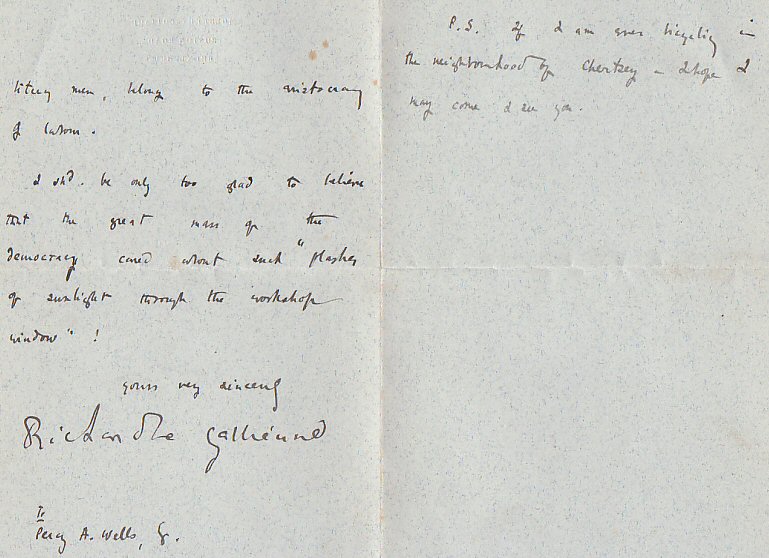 men, belong to the aristocracy
of labour.
I shd. be only too glad to believe
that the great mass of the
democracy cared about such "flashes
of sunlight through the workshop
window" !
yours very sincerely
Richard Le Gallienne
To
Percy A. Wells, Esq.
P.S. If I am ever bicycling in
the neighbourhood of Chertsey — I hope I
may come & see you.